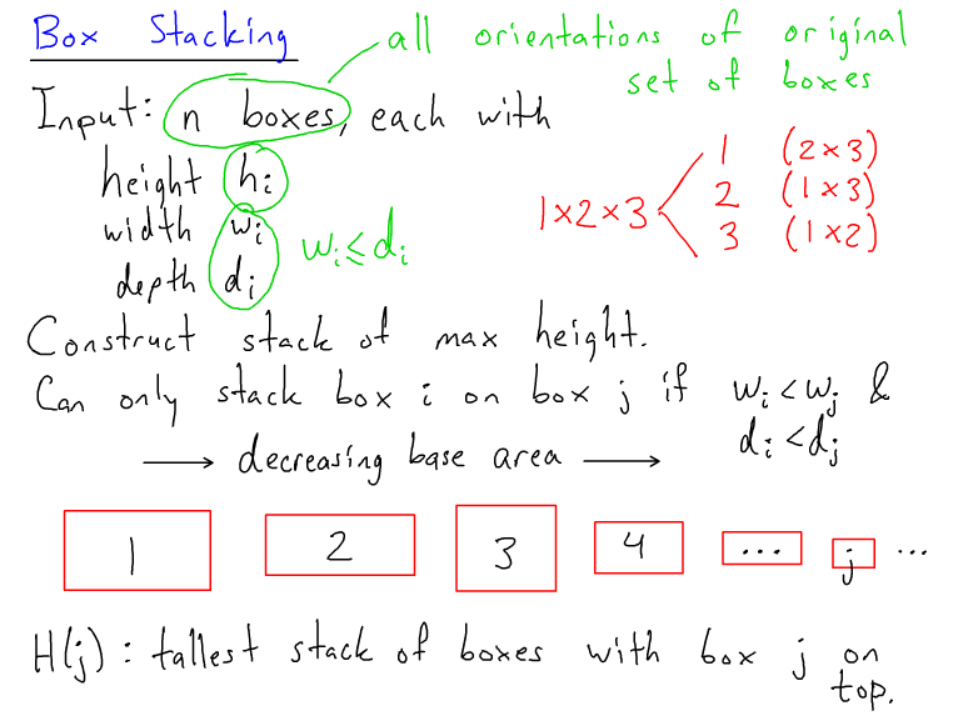 Box Stacking
all orientations of original
set of boxes
Input: n boxes, each with
height hᵢ
width wᵢ
depth dᵢ
wᵢ ≤ dᵢ
1×2×3
1 (2×3)
2 (1×3)
3 (1×2)
Construct stack of max height.
Can only stack box i on box j if wᵢ < wⱼ &
dᵢ < dⱼ
→ decreasing base area →
1 2 3 4 ... j ...
H(j): tallest stack of boxes with box j on
top.